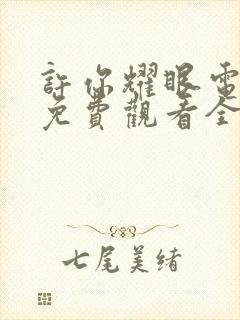 許你耀眼電
免費觀看全
七尾美緒